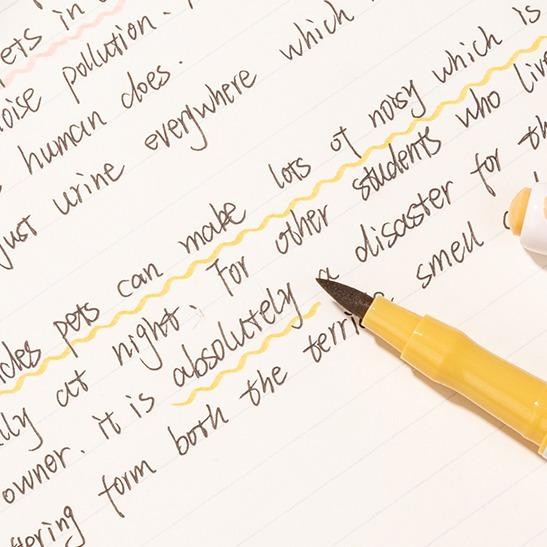 ets in
oise pollution.
human does.
just urine everywhere which
ides pets can make lots of noisy which is
lly at night. For other students who live
owner. it is absolutely a disaster for th
tering form both the terri smell